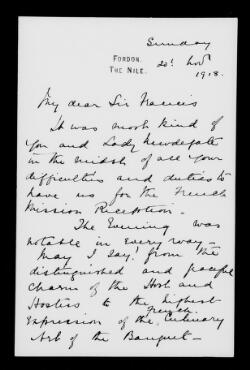 Sunday
FORDON.
THE NILE.
20th Novr
1918.
My dear Sir Francis
It was most kind of
you and Lady Newdegate
in the midst of all your
difficulties and duties to
have us for the French
Mission Reception -
The Evening was
notable in every way -
May I say! from the
distinguished and graceful
charm of the Host and
Hostess to the highest
Expression of the French Culinary
Art of the Banquet -